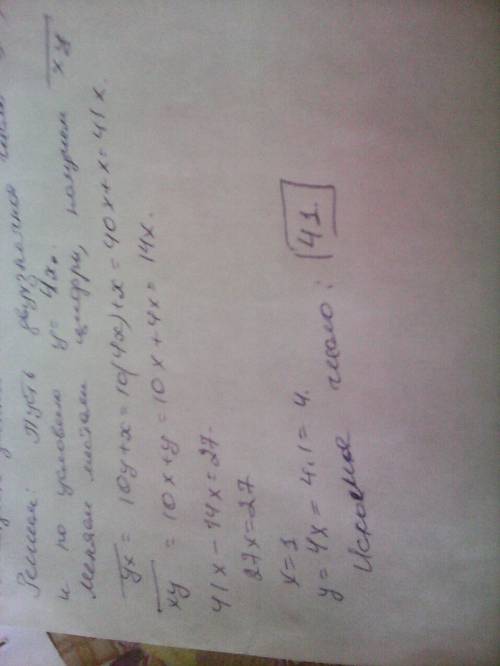 Решение: Пусть двузначное число
и по условию y = 4x.
Меняем местами цифры, получим xy
yx = 10y+x = 10(4x)+x = 40x+x = 41x.
xy = 10x+y = 10x+4x = 14x.
41x - 14x = 27.
27x = 27
x = 1
y = 4x = 4.1 = 4.
Искомое число: 41.